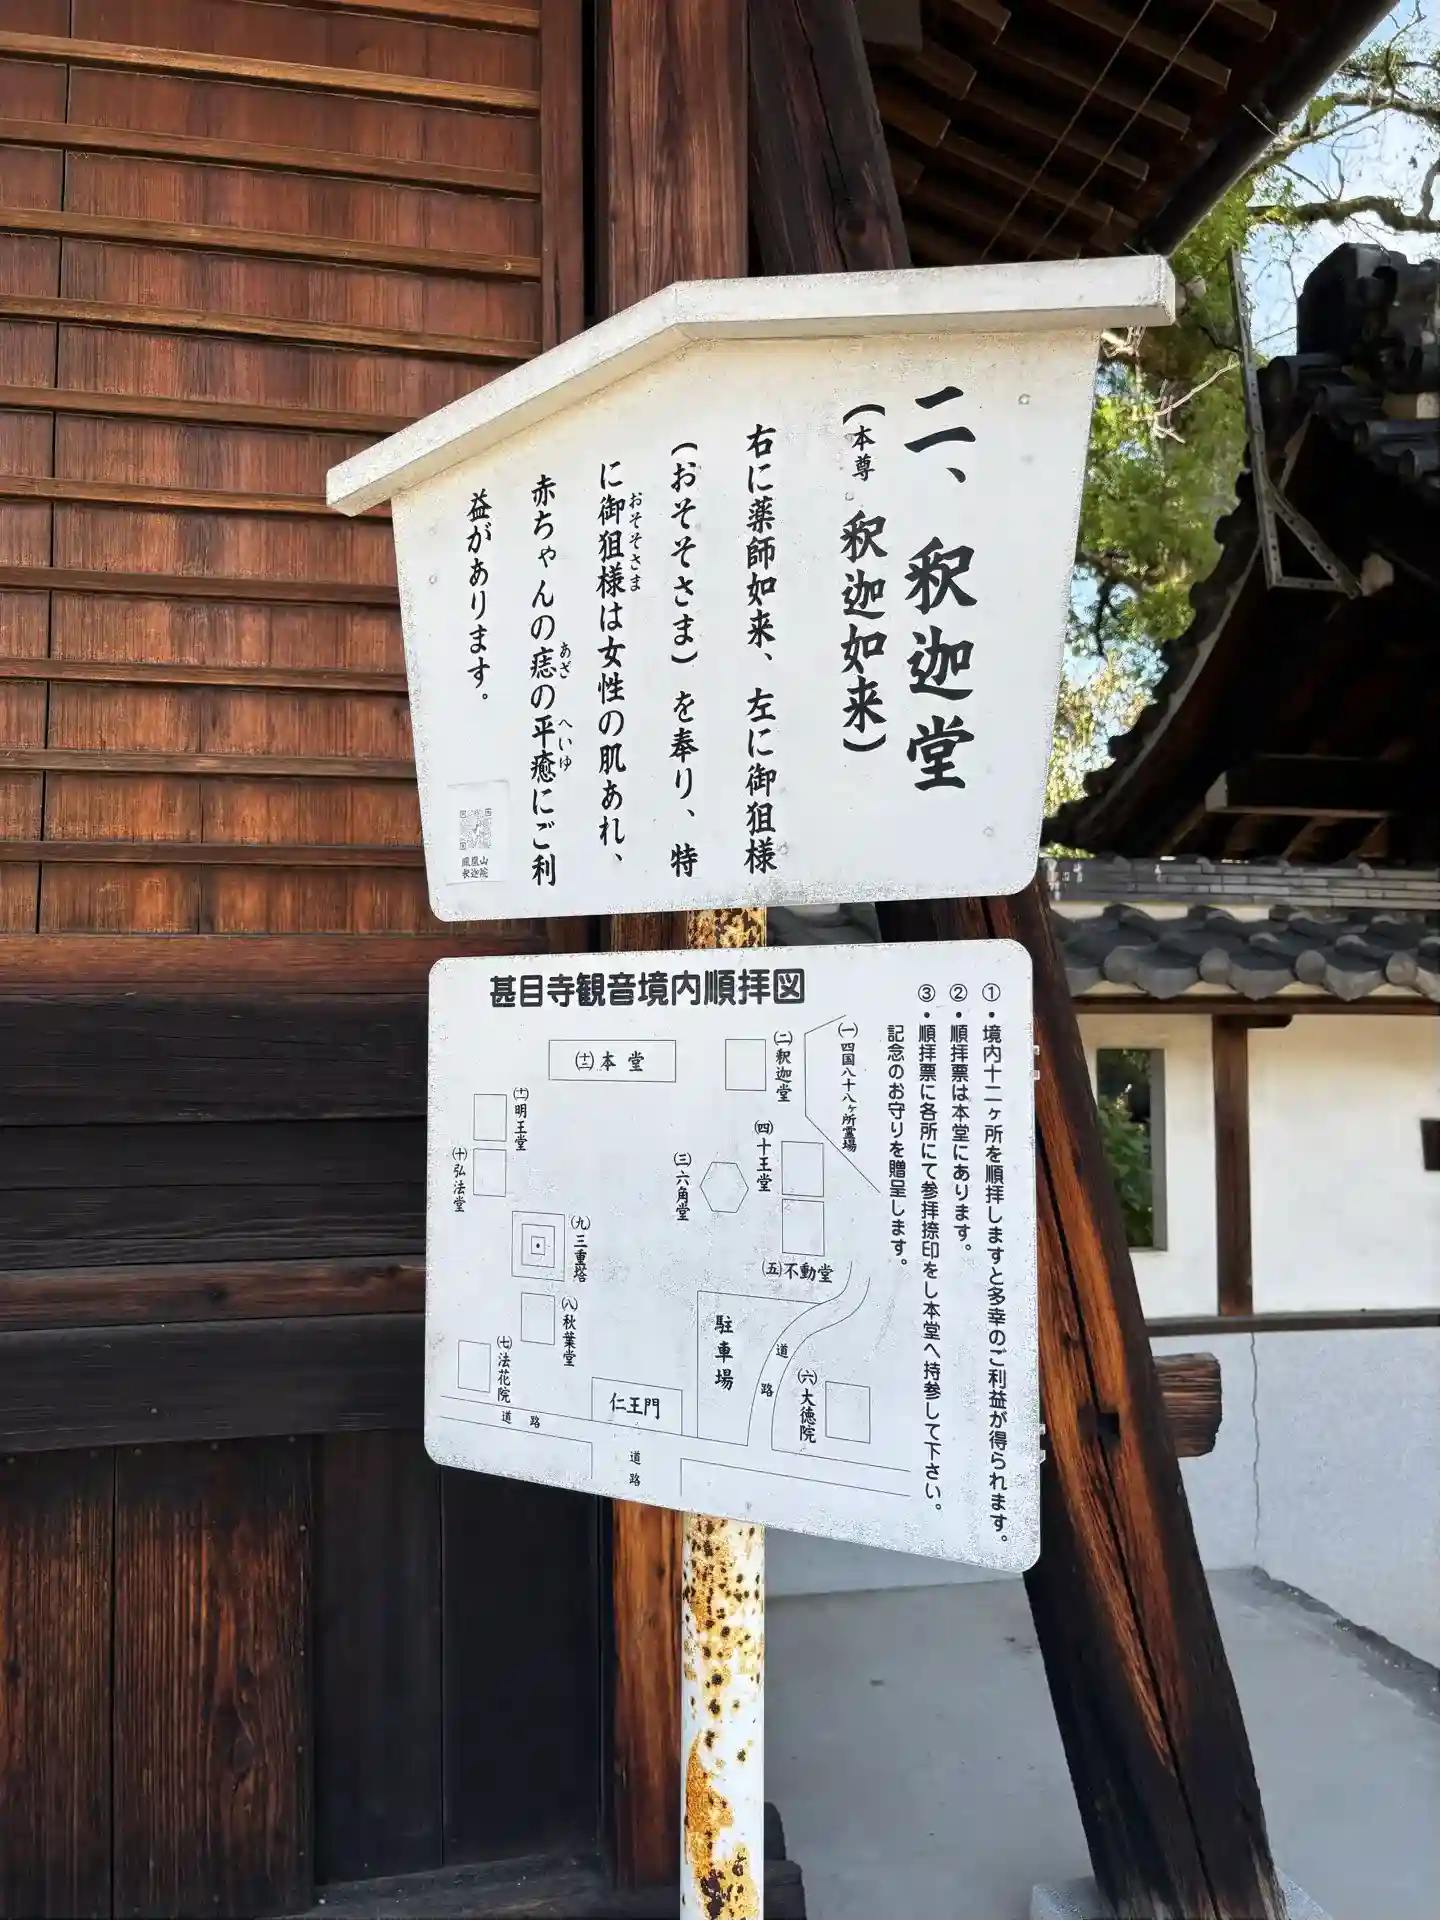 二、釈迦堂
(本尊 釈迦如来)
右に薬師如来、左に御狙様
(おそそさま)を奉り、特
に御狙様は女性の肌あれ、
おそそさま
赤ちゃんの痣の平癒にご利
あざ
へいゆ
益があります。
鳳凰山
釈迦院
甚目寺観音境内順拝図
①・境内十二ヶ所を順拝しますと多幸のご利益が得られます。
②・順拝票は本堂にあります。
③・順拝票に各所にて参拝捺印をし本堂へ持参して下さい。
記念のお守りを贈呈します。
㈠四国八十八ヶ所霊場
㈡釈迦堂
(十二)本堂
(十一)明王堂
㈩弘法堂
㈣十王堂
㈢六角堂
㈨三重塔
㈤不動堂
㈧秋葉堂
㈦法花院
駐車場
道路
㈥大徳院
仁王門
道路
道路